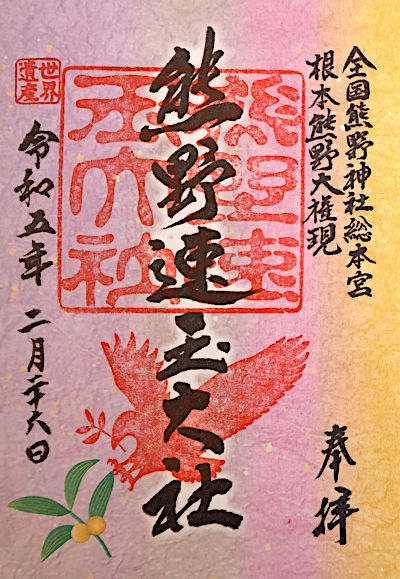 全国熊野神社総本宮
根本熊野大権現
奉拝
熊野速玉大社
熊野速玉大社
世界遺産
令和五年 二月二十六日